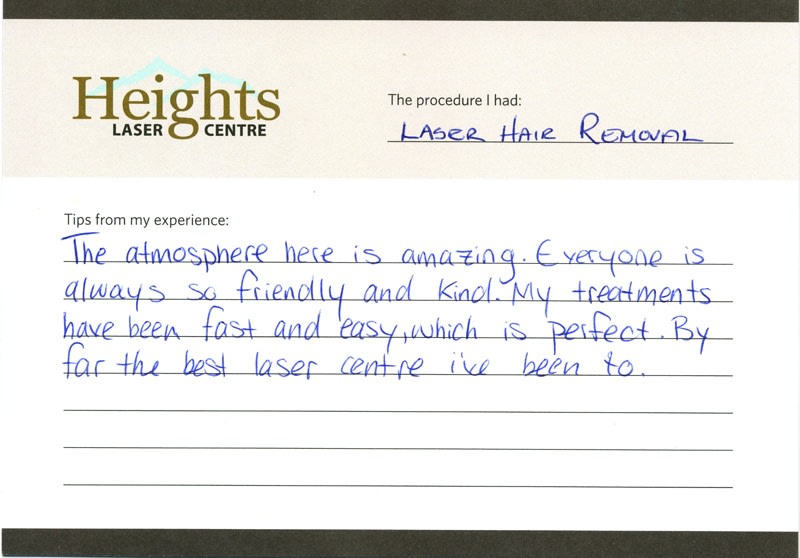 Heights
LASER CENTRE
The procedure I had:
LASER HAIR REMOVAL
Tips from my experience:
The atmosphere here is amazing. Everyone is
always so friendly and kind. My treatments
have been fast and easy, which is perfect. By
far the best laser centre i've been to.